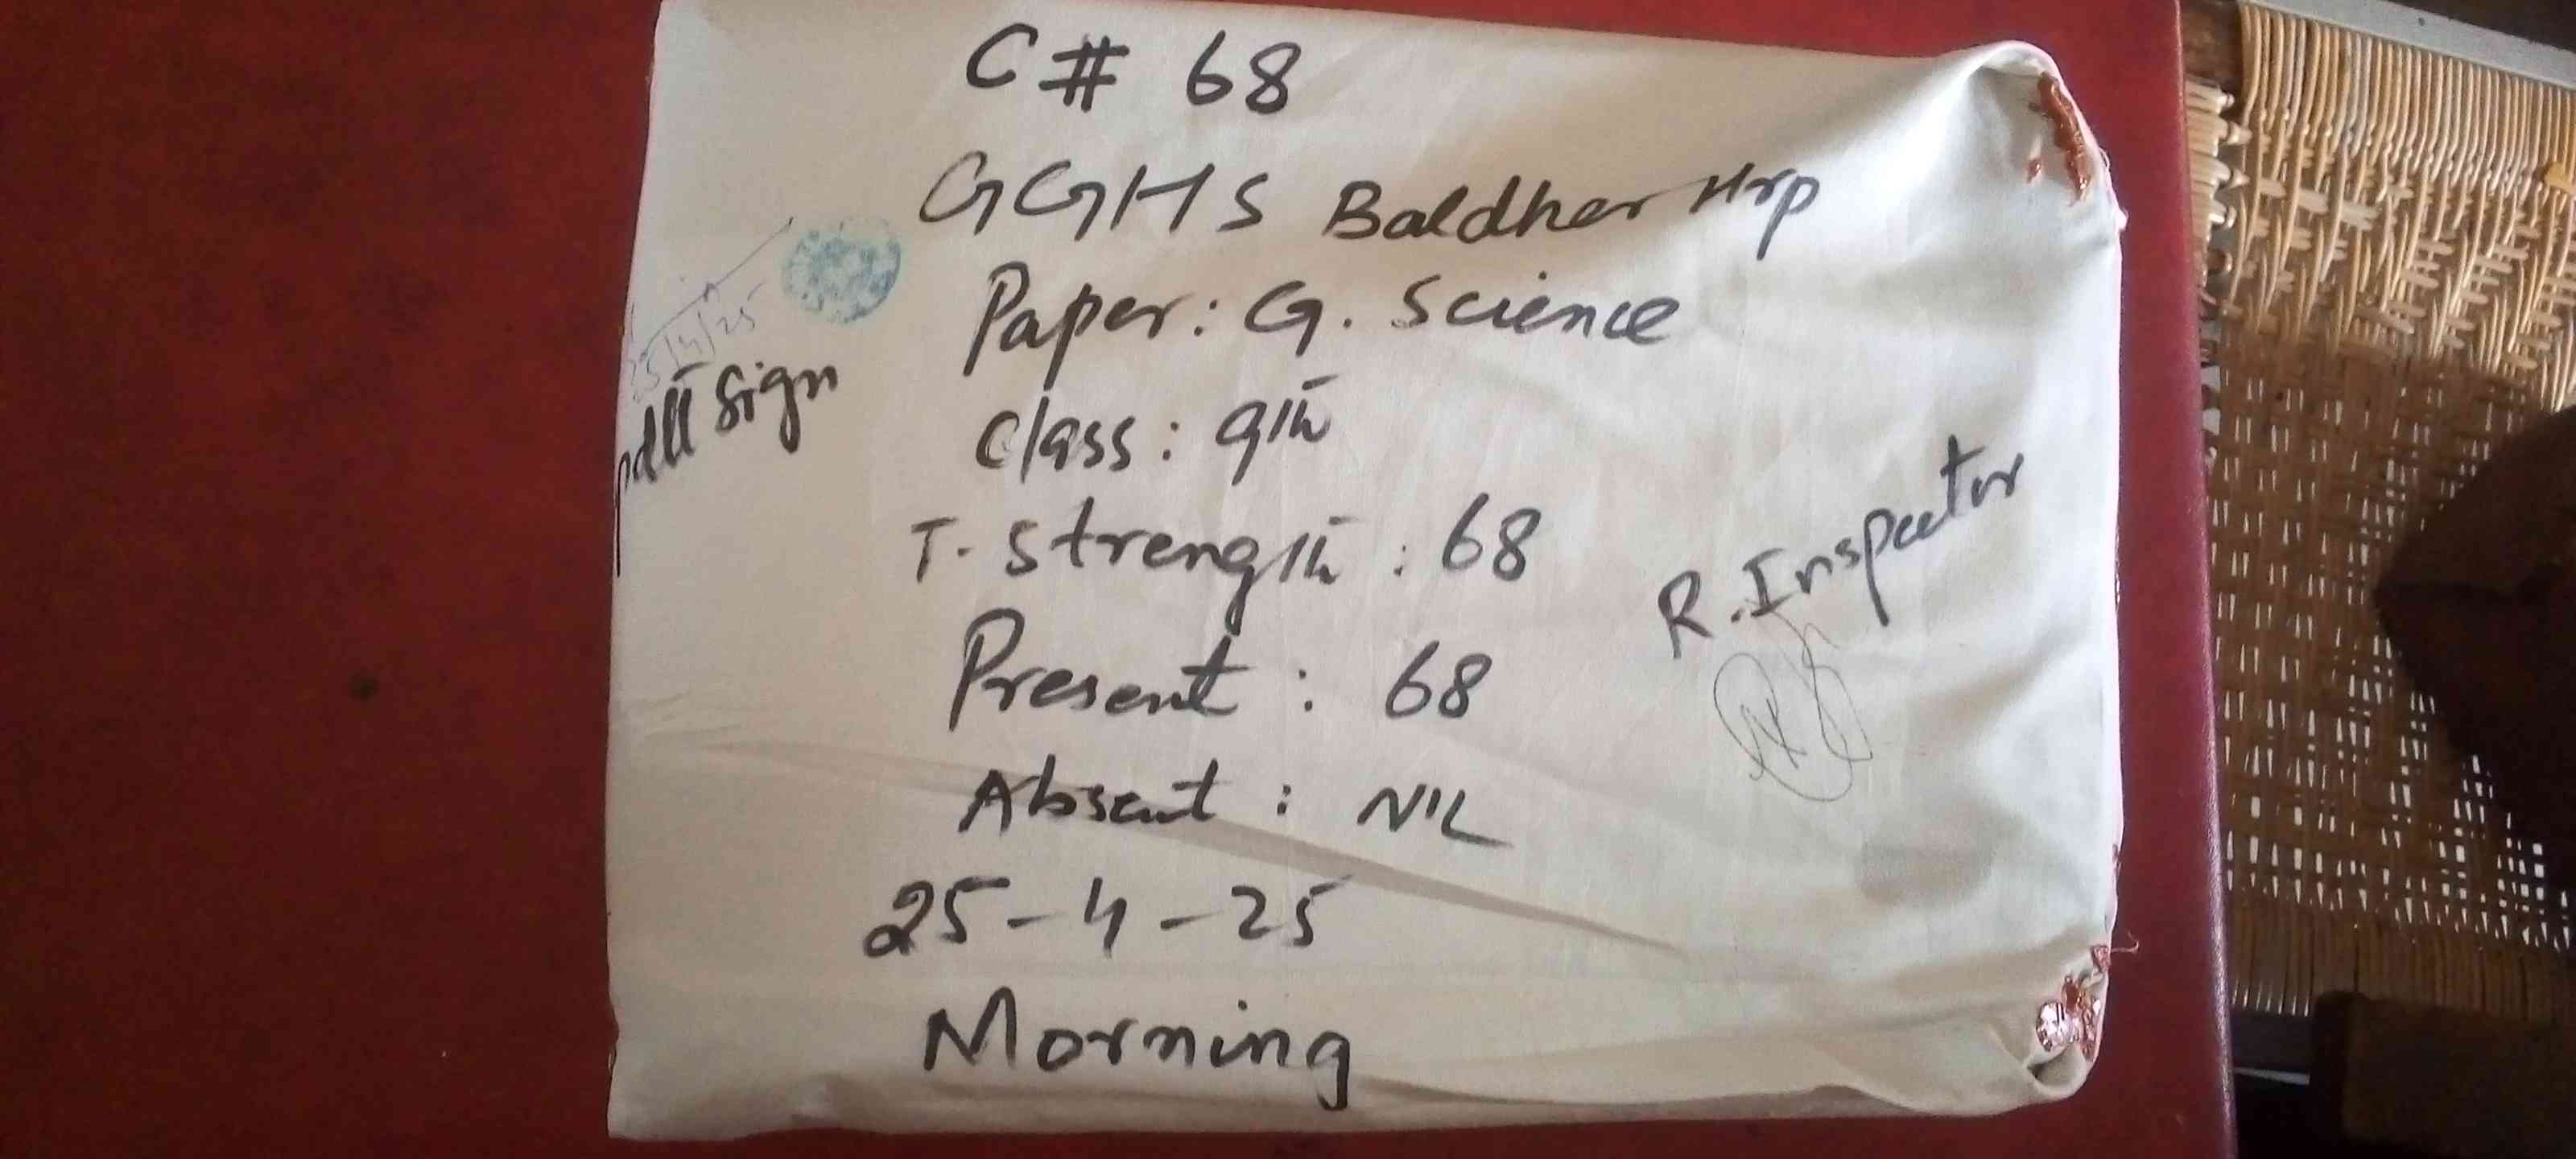 C # 68
GGHS Baldher Hrp
Paper: G. Science
Class: 9th
T. Strength : 68
Present : 68
Absent : NIL
25-4-25
Morning
25/4/25
Sign
R. Inspector